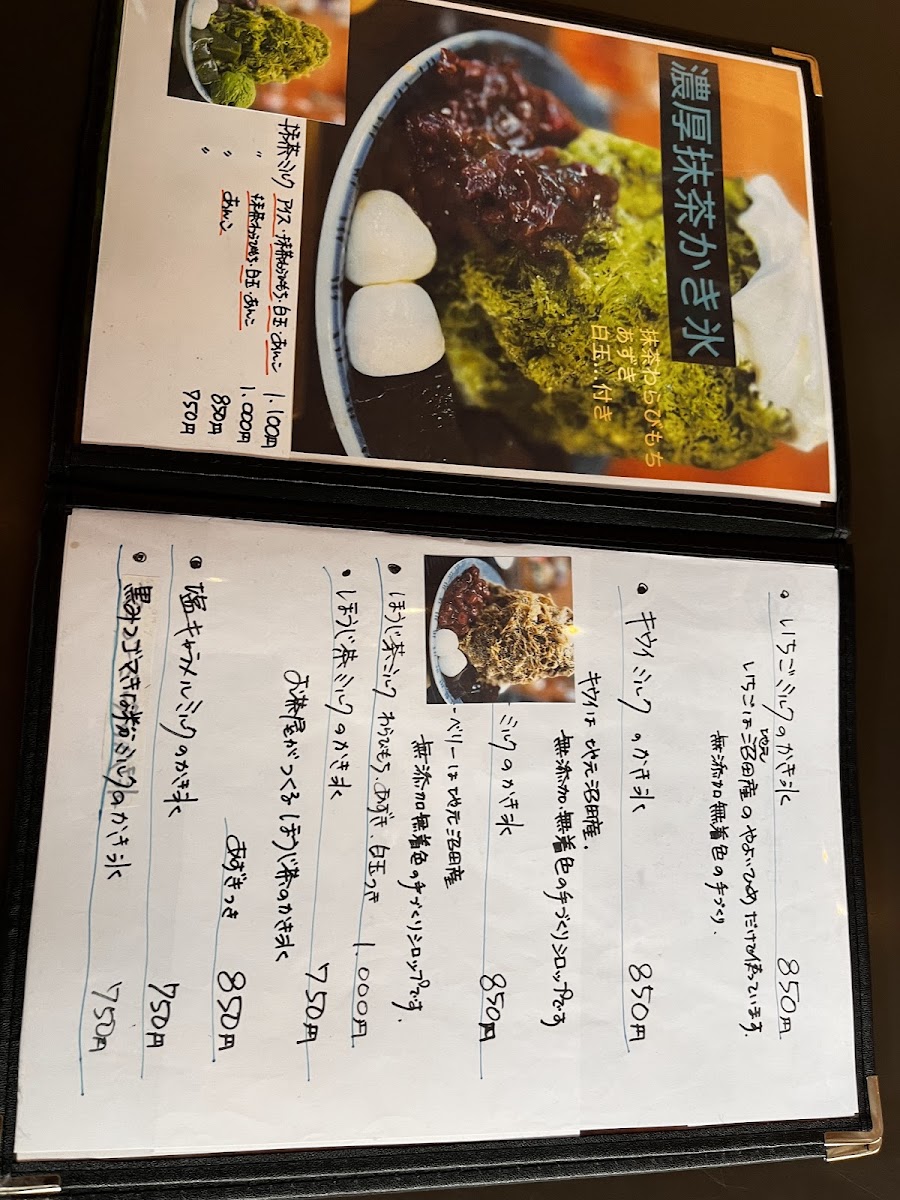 濃厚抹茶かき氷
抹茶わらびもち
あずき
白玉…付き
抹茶ミルク アイス・抹茶わらびもち・白玉・あんこ 1,100円
〃 抹茶わらびもち・白玉・あんこ 1,000円
〃 あんこ 850円
〃 750円
・いちごミルクのかき氷 850円
地元
いちごは沼田産のやよいひめだけを使っています。
無添加無着色の手づくり.
・キウイミルクのかき氷 850円
キウイは地元沼田産.
無添加.無着色の手づくりシロップです
ミルクのかき氷 850円
ベリーは地元沼田産
無添加無着色の手づくりシロップです.
・ほうじ茶ミルク わらびもち.あずき.白玉つき 1,000円
・ほうじ茶ミルクのかき氷 750円
お茶屋がつくるほうじ茶のかき氷
あずきつき 850円
・塩キャラメルミルクのかき氷 750円
・黒みつゴマきな粉ミルクのかき氷 750円